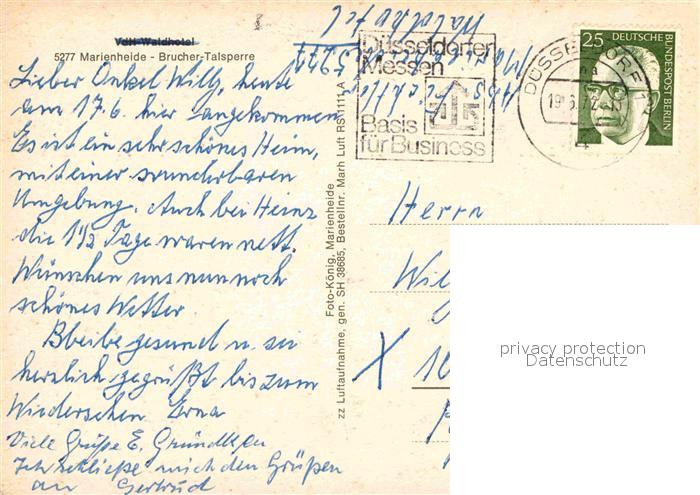 VdH-Waldhotel
5277 Marienheide - Brucher-Talsperre
Lieber Onkel Willy, heute
am 17.6. hier angekommen
Es ist ein sehr schönes Heim,
mit einer wunderbaren
Umgebung. Auch bei Heinz
die 1½ Tage waren nett.
Wünschen uns nun noch
schönes Wetter
Bleibe gesund u. sei
herzlich gegrüßt bis zum
Wiedersehen. Erna
Viele Grüße E.
Ich schließe mich den Grüßen
an Gertrud
Foto-König, Marienheide
zz Luftaufnahme, gen. SH 38685, Bestellnr. Marh Luft RS 1111 A
Abs.
5277
Waldhotel
Düsseldorfer
Messen
Basis
für Business
DÜSSELDORF
19.6.72
4
25 DEUTSCHE
BUNDESPOST BERLIN
Herrn
Wil
X 10
privacy protection
Datenschutz